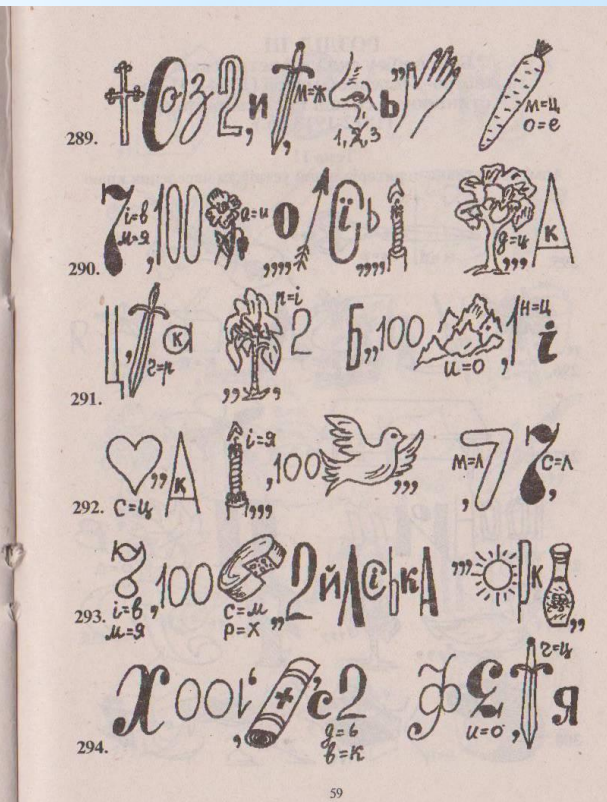 Оз2,и, м=ж 1,2,3 ь,, м=ц о=е
289.
7 і=в м=я ,100 а=и о ,,,, Сїь ,,,, д=ц ,,, А к
290.
Ц, г=р к р=і ,,, , 2 Б,,100 и=о ,1 н=ц і
291.
С=ц ,, А к і=я ,,,, ,100 ,,, м=л ,7 7 с=л ,
292.
і=в м=я ,100 с=м р=х ,,2йЛСіькА ,,, к ,,
293.
Х001', + ,с2 д=ь в=к ФЄ и=о , г=ц я
294.
59